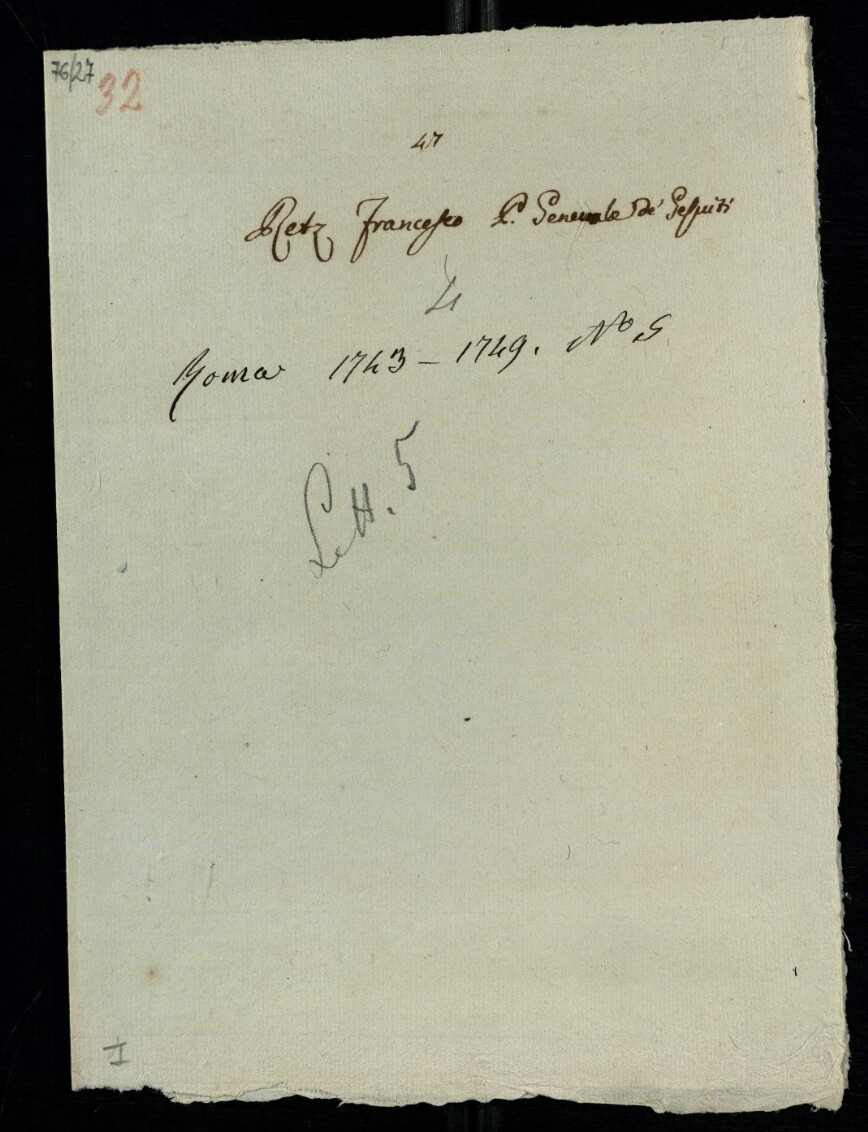 76/27
32
47
Retz Francesco P. Generale de' Gesuiti
4
Roma 1743 – 1749. Nº 5
Lett. 5
I